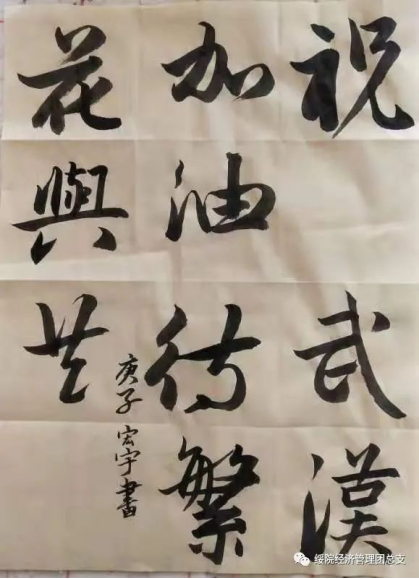 祝武漢
加油待繁
花與共
庚子宏宇書
绥院经济管理团总支